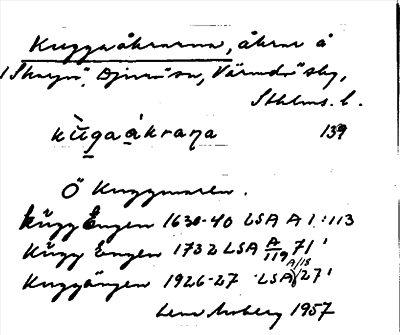 Kuggaåkrarna, åkrar å
"Skarpö", Djurö sn, Värmdö skg,
Sthlms. l.
kùgaákraṇa 139
Ö Kuggmaren.
Kügg Engen 1630-40 LSA A 1:113
Kügg Engen 1732 LSA A/119 71'
Kuggängen 1926-27 LSA A/18 27'
1957